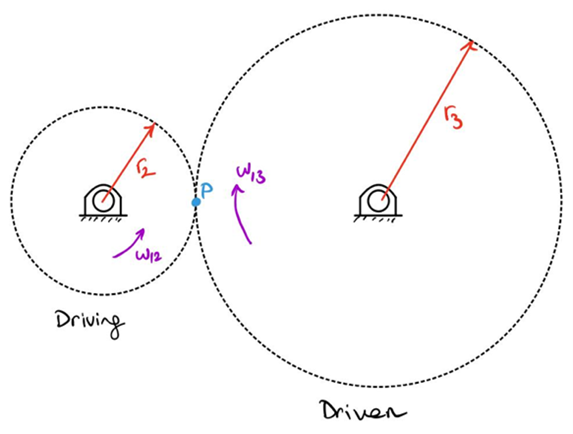 r3
r2
P
ω13
ω12
Driving
Driven